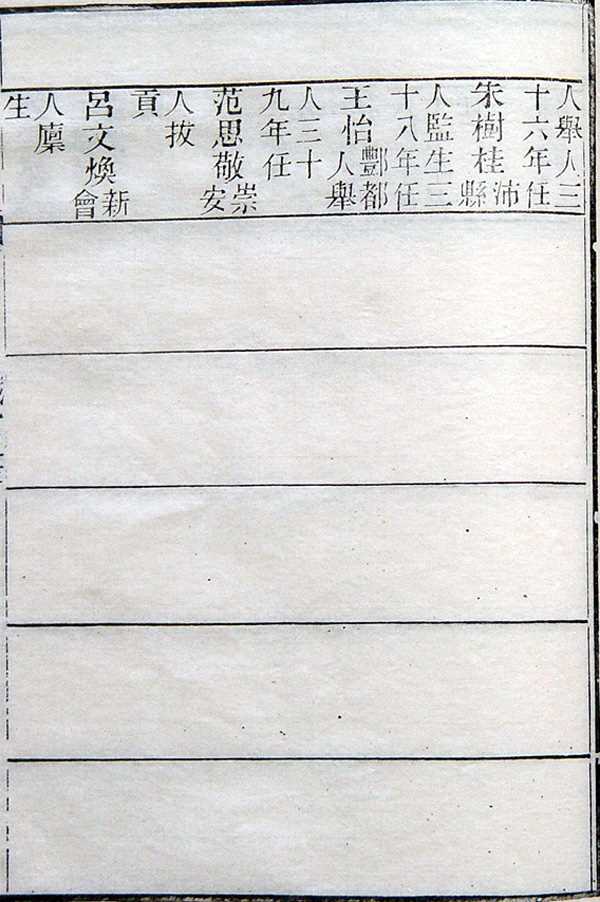 人舉人三
十六年任
朱樹桂沛縣
人監生三
十八年任
王怡酆都人舉
人三十
九年任
范思敬崇安
人拔
貢
呂文煥新會
人廩
生